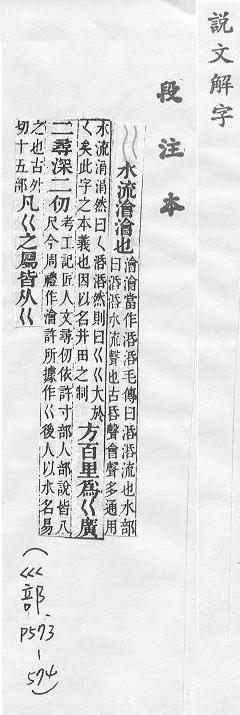 說文解字
段注本
水流澮澮也
澮澮當作涽涽毛傳曰涽涽流也水部
曰涽涽水流聲也古昏聲會聲多通用
水流涓涓然曰𡿨涽涽然則曰巜巜大於
𡿨矣此字之本義也因以名井田之制
方百里爲巜廣
二尋深二仞
考工記匠人文尋仞依許寸部人部說皆八
尺今周禮作澮許所據作巜後人以水名易
之也古外
切十五部
凡巜之屬皆从巜
(巛部. P573-574)